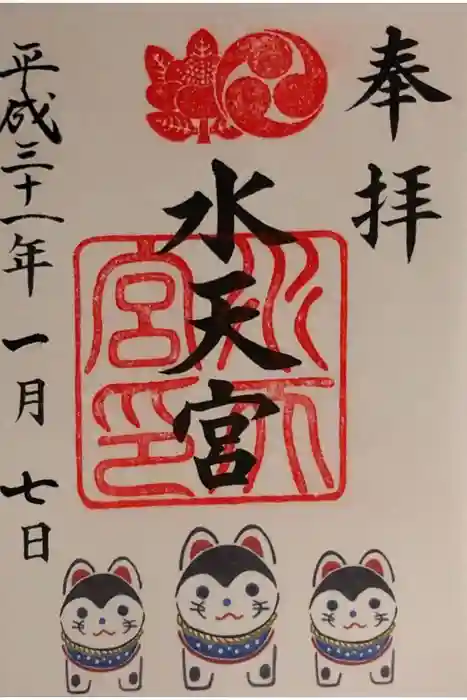 奉拝
水天宮
水天宮印
平成三十一年一月七日